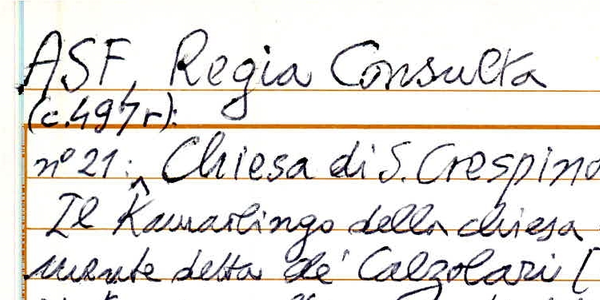 ASF, Regia Consulta
(c.497r):
n° 21: Chiesa di S. Crespino
Il Kamarlingo della chiesa
mente detta de' Calzolari [